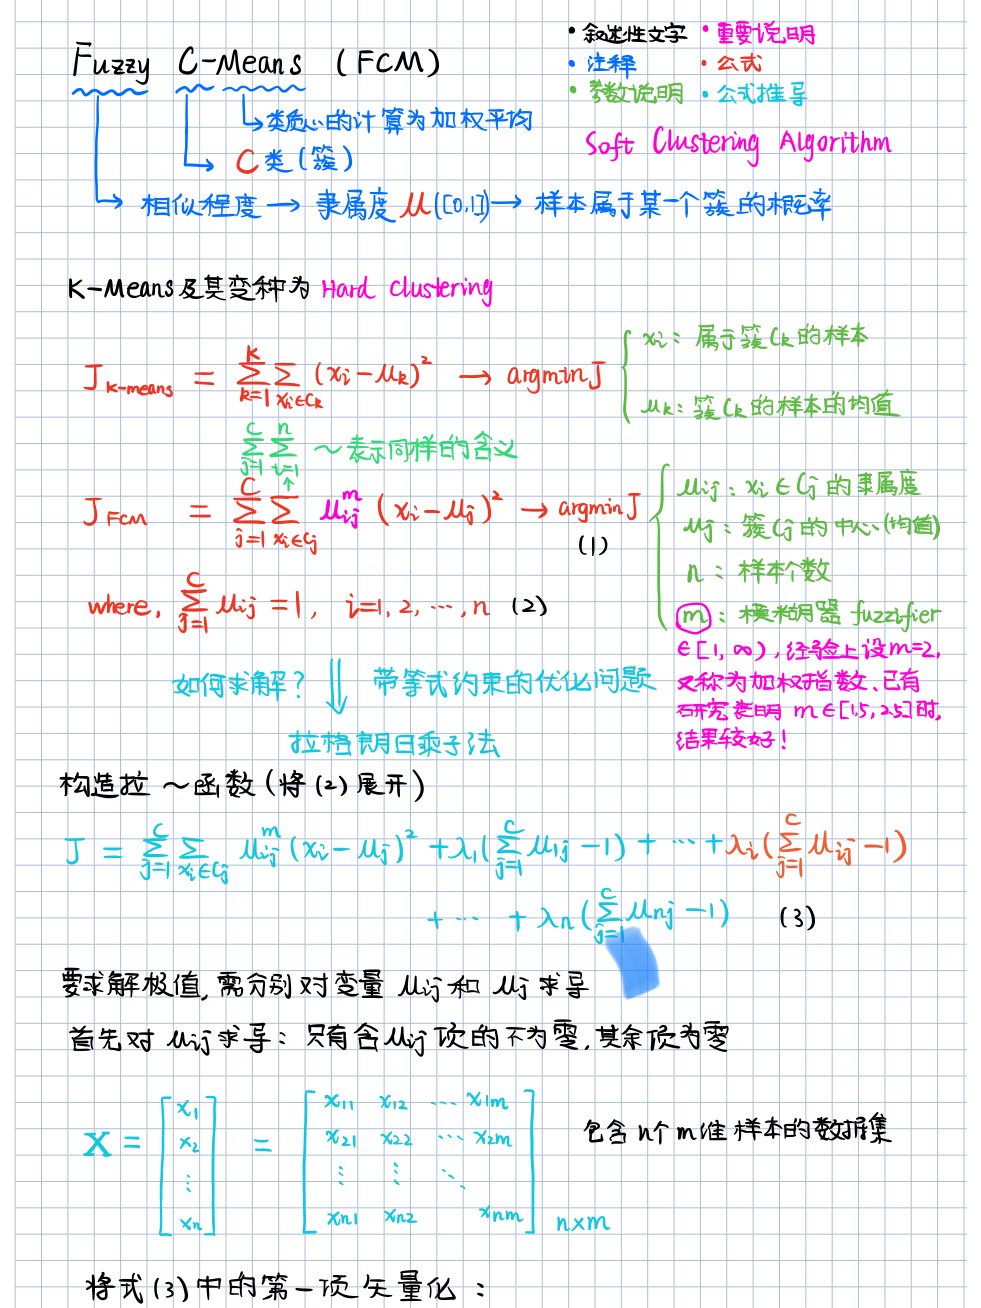 • 叙述性文字 • 重要说明
• 注释 • 公式
• 参数说明 • 公式推导
Fuzzy C-Means (FCM)
类质心的计算为加权平均
C 类(簇)
Soft Clustering Algorithm
相似程度 → 隶属度 μ([0,1]) → 样本属于某一个簇的概率
K-Means及其变种为 Hard clustering
J_{K-means} = \sum_{k=1}^{K} \sum_{x_i∈C_k} (x_i - μ_k)^2 → argmin J
x_i: 属于簇C_k的样本
μ_k: 簇C_k的样本的均值
\sum_{j=1}^{C} \sum_{i=1}^{n} ～表示同样的含义
J_{FCM} = \sum_{j=1}^{C} \sum_{x_i∈C_j} μ_{ij}^m (x_i - μ_j)^2 → argmin J (1)
μ_{ij}: x_i∈C_j 的隶属度
μ_j: 簇C_j的中心(均值)
n: 样本个数
m: 模糊器 fuzzifier
∈[1, ∞), 经验上设m=2,
又称为加权指数、已有
研究表明 m∈[1.5, 2.5]时,
结果较好!
where, \sum_{j=1}^{C} μ_{ij} = 1, i=1, 2, ⋯, n (2)
如何求解? ⇓ 带等式约束的优化问题
拉格朗日乘子法
构造拉～函数(将(2)展开)
J = \sum_{j=1}^{C} \sum_{x_i∈C_j} μ_{ij}^m (x_i - μ_j)^2 + λ_1(\sum_{j=1}^{C} μ_{1j} - 1) + ⋯ + λ_i(\sum_{j=1}^{C} μ_{ij} - 1)
+ ⋯ + λ_n(\sum_{j=1}^{C} μ_{nj} - 1) (3)
要求解极值, 需分别对变量 μ_{ij} 和 μ_j 求导
首先对 μ_{ij} 求导: 只有含 μ_{ij} 项的不为零, 其余项为零
X = [x_1 x_2 ⋮ x_n] = [x_{11} x_{12} ⋯ x_{1m}
x_{21} x_{22} ⋯ x_{2m}
⋮ ⋮ ⋱
x_{n1} x_{n2} x_{nm}] n×m
包含 n个m维样本的数据集
将式(3)中的第一项矢量化: